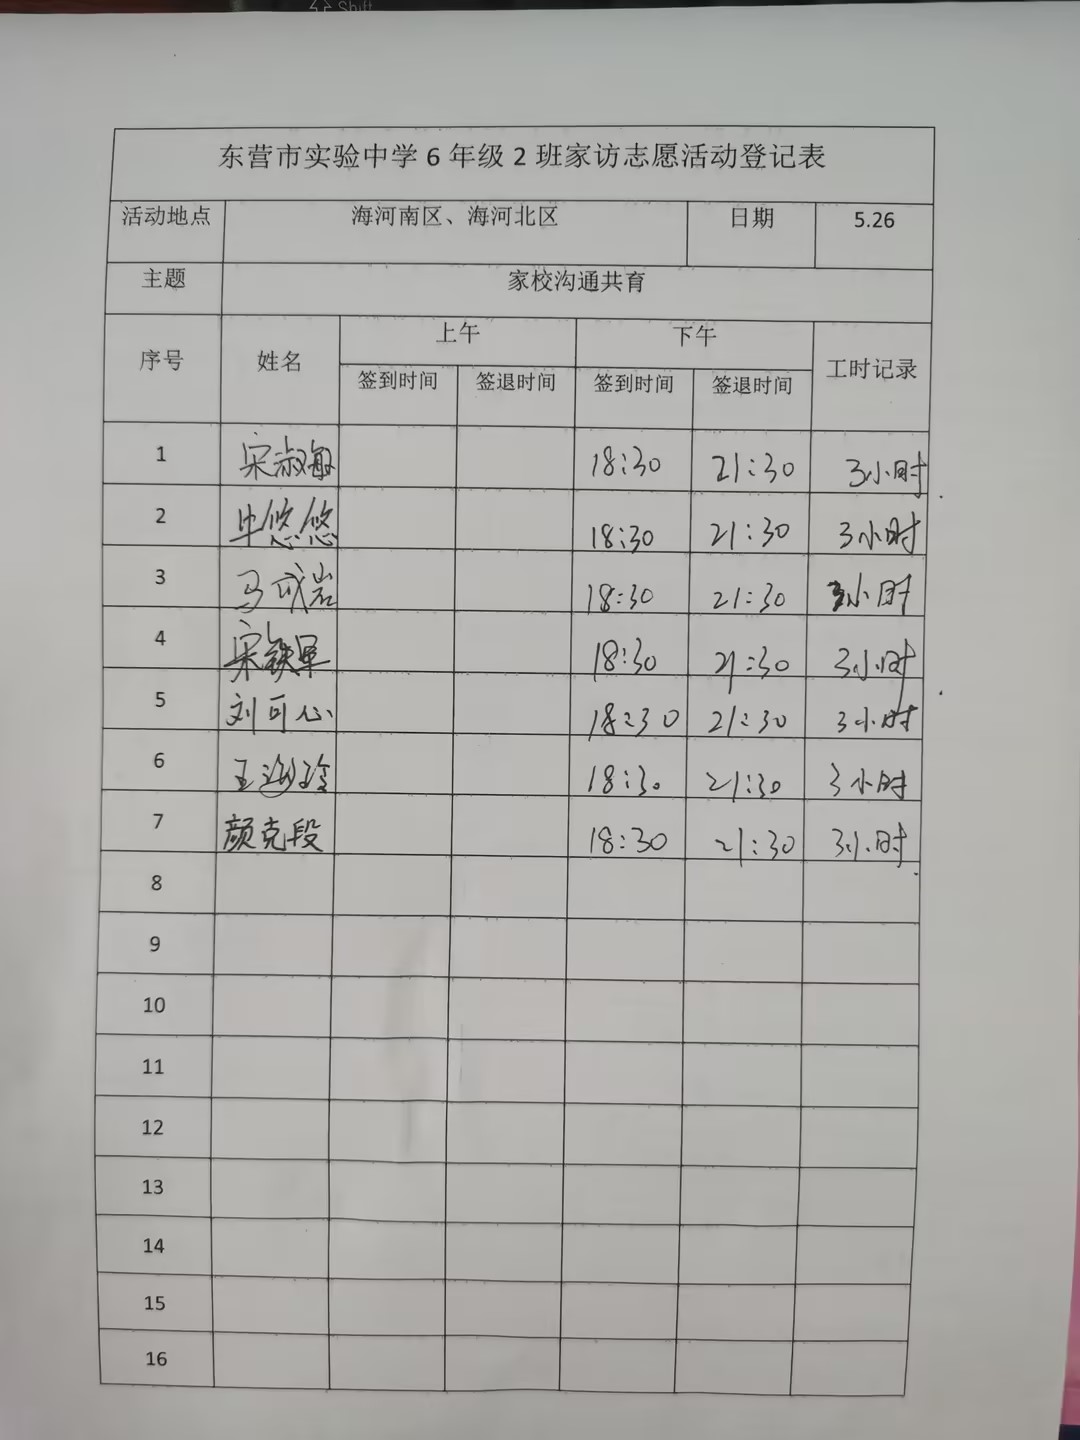 Shift
东营市实验中学6年级2班家访志愿活动登记表
活动地点 海河南区、海河北区 日期 5.26
主题 家校沟通共育
序号 姓名 上午 下午 工时记录
签到时间 签退时间 签到时间 签退时间
1 宋淑敏 18:30 21:30 3小时
2 毕悠悠 18:30 21:30 3小时
3 马成岩 18:30 21:30 3小时
4 宋铁军 18:30 21:30 3小时
5 刘可心 18:30 21:30 3小时
6 王海玲 18:30 21:30 3小时
7 颜克段 18:30 21:30 3小时
8
9
10
11
12
13
14
15
16